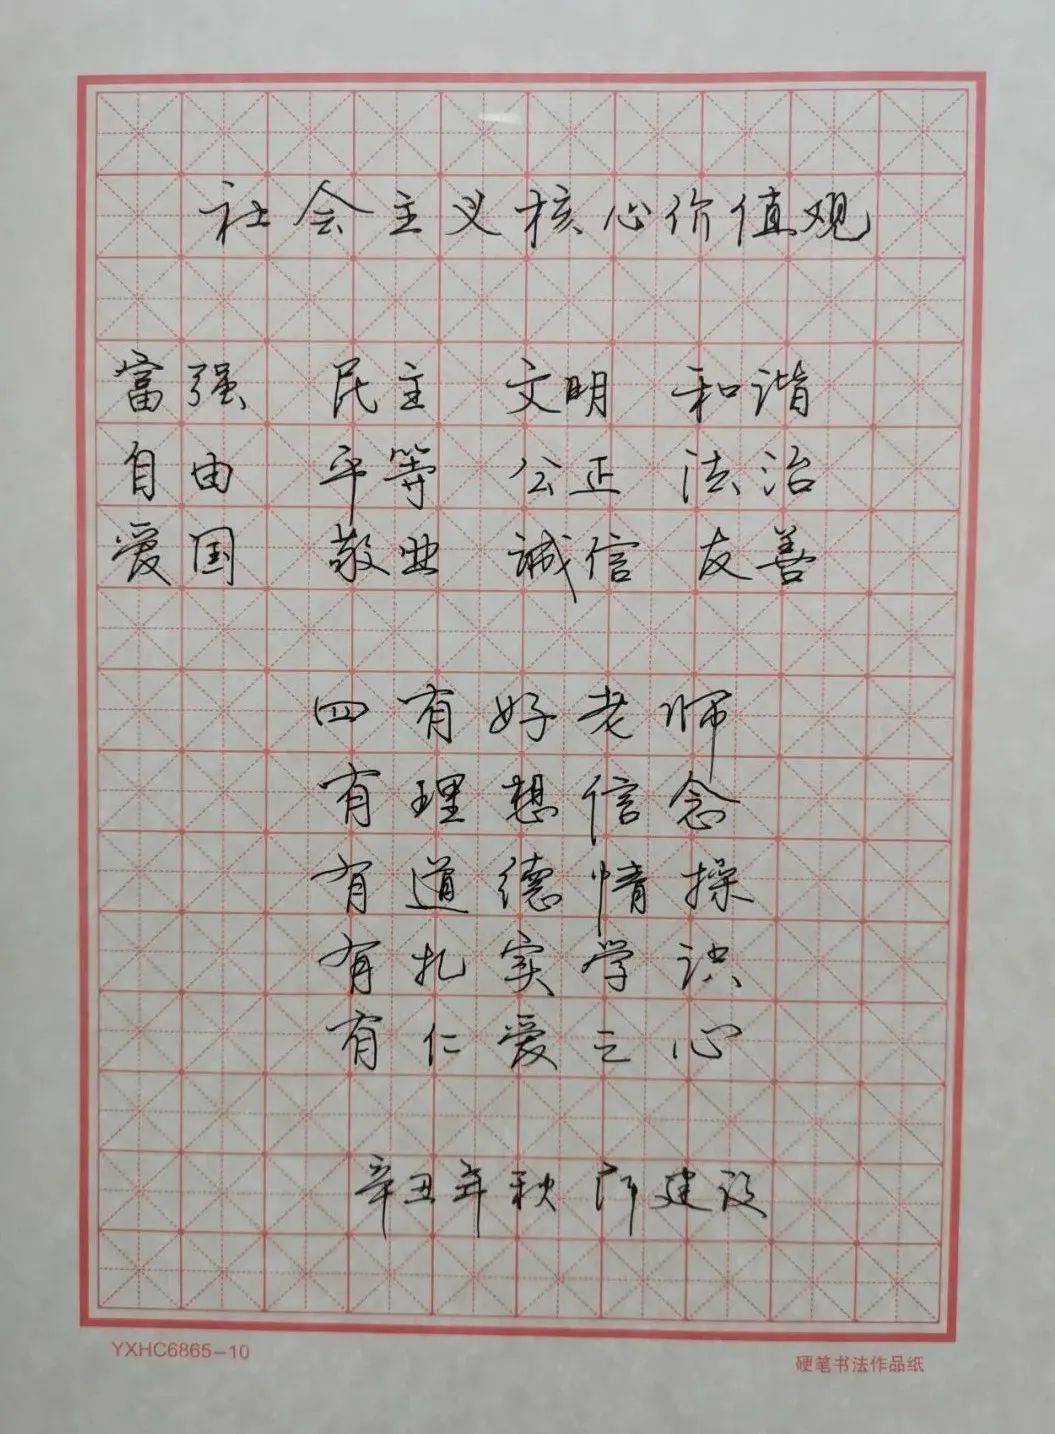 社会主义核心价值观
富强 民主 文明 和谐
自由 平等 公正 法治
爱国 敬业 诚信 友善
四有好老师
有理想信念
有道德情操
有扎实学识
有仁爱之心
辛丑年秋 建设
YXHC6865-10
硬笔书法作品纸